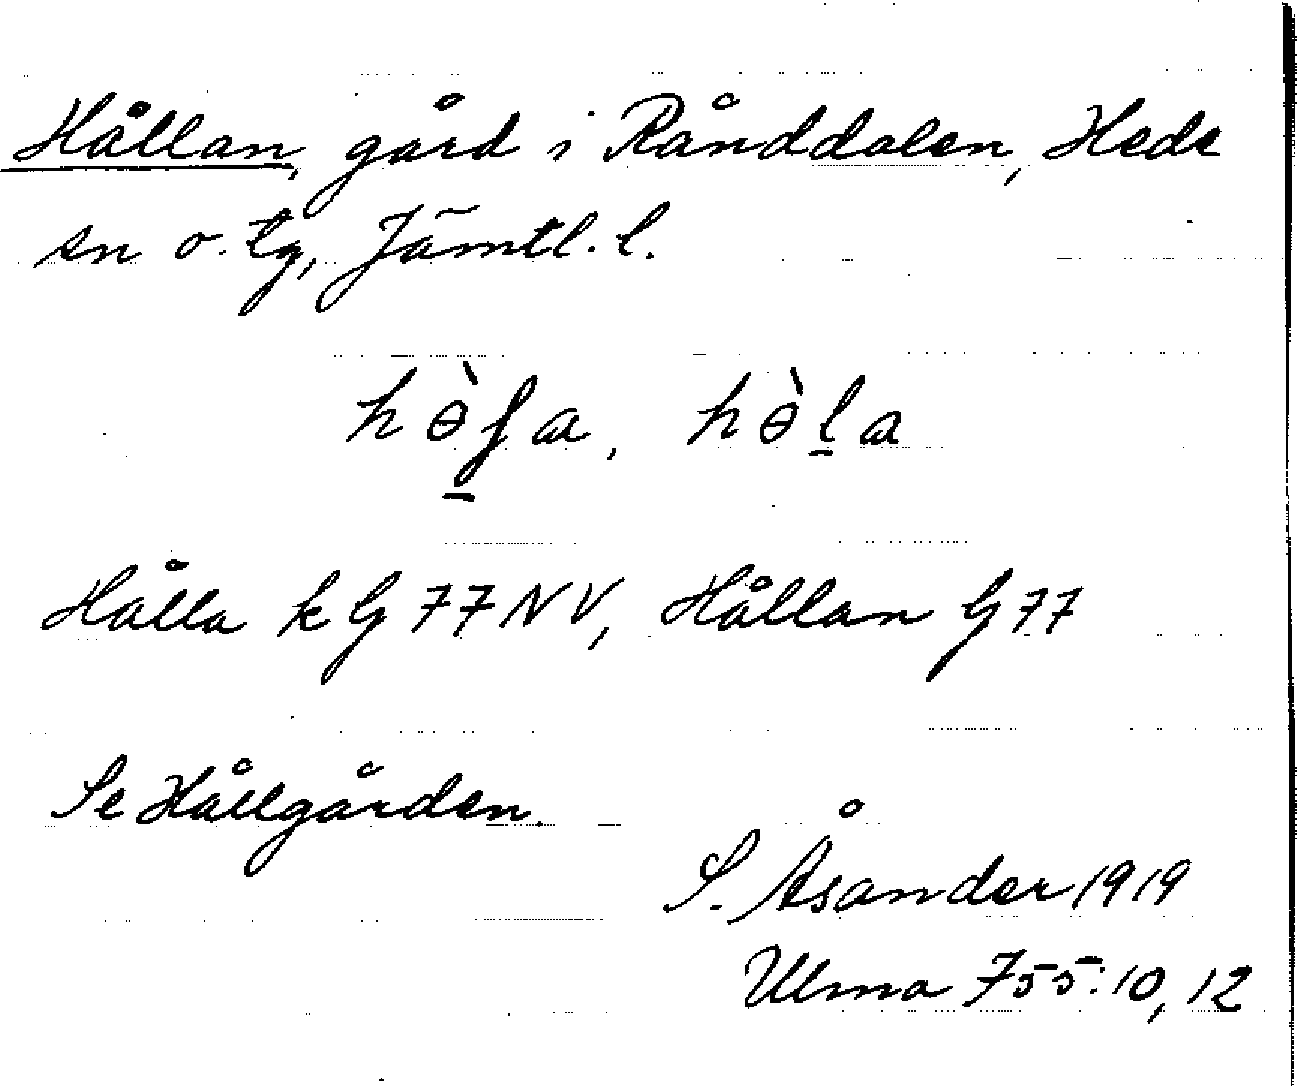 Hållan, gård i Rånddalen, Hede
sn o. tg, Jämtl. l.
hɵ̀ʃ̠a, hɵ̀l̠a
Hålla k G 77 NV, Hållan G 77
Se Hållgården.
S. Åsander 1919
Ulma 755:10, 12